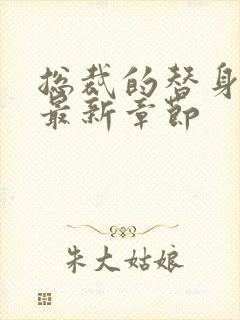 总裁的替身
最新章节
朱大姑娘